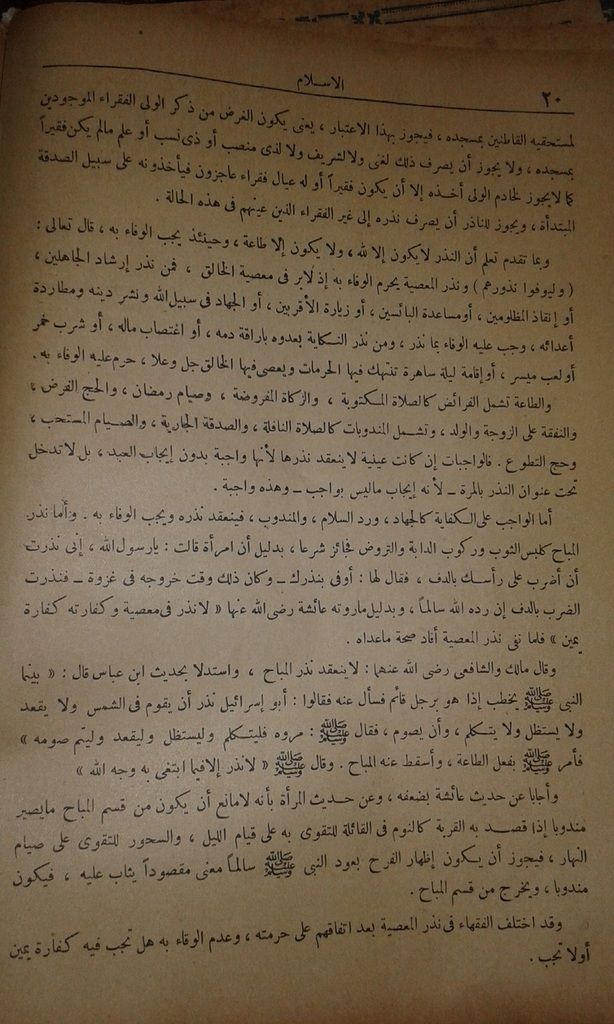 ٢٠
الاسلام
لمستحقيه القاطنين بمسجده ، فيجوز بهذا الاعتبار ، يعنى يكون الغرض من ذكر الولى الفقراء الموجودين
بمسجده ، ولا يجوز أن يصرف ذلك لغنى ولا لشريف ولا لذى منصب أو ذى نسب أو علم مالم يكن فقيراً
كما لا يجوز لخادم الولى أخذه إلا أن يكون فقيراً أو له عيال فقراء عاجزون فيأخذونه على سبيل الصدقة
المبتدأة ، ويجوز للناذر أن يصرف نذره إلى غير الفقراء الذين عينهم فى هذه الحالة .
وبما تقدم تعلم أن النذر لا يكون إلا لله ، ولا يكون إلا طاعة ، وحينئذ يجب الوفاء به ، قال تعالى :
( وليوفوا نذورهم ) ونذر المعصية يحرم الوفاء به إذ لا بر فى معصية الخالق ، فمن نذر إرشاد الجاهلين ،
أو إنقاذ المظلومين ، أو مساعدة البائسين ، أو زيارة الأقربين ، أو الجهاد فى سبيل الله ونشر دينه ومطاردة
أعدائه ، وجب عليه الوفاء بما نذر ، ومن نذر النكاية بعدوه باراقة دمه ، أو اغتصاب ماله ، أو شرب خمر
أو لعب ميسر ، أو إقامة ليلة ساهرة تنتهك فيها الحرمات ويعصى فيها الخالق جل وعلا ، حرم عليه الوفاء به .
والطاعة تشمل الفرائض كالصلاة المكتوبة ، والزكاة المفروضة ، وصيام رمضان ، والحج الفرض ،
والنفقة على الزوجة والولد ، وتشمل المندوبات كالصلاة النافلة ، والصدقة الجارية ، والصيام المستحب ،
وحج التطوع . فالواجبات إن كانت عينية لا ينعقد نذرها لأنها واجبة بدون إيجاب العبد ، بل لا تدخل
تحت عنوان النذر بالمرة ــ لأنه إيجاب ماليس بواجب ــ وهذه واجبة .
أما الواجب على الكفاية كالجهاد ، ورد السلام ، والمندوب ، فينعقد نذره ويجب الوفاء به . وأما نذر
المباح كلبس الثوب وركوب الدابة والتروض فجائز شرعا ، بدليل أن امرأة قالت : يارسول الله ، إنى نذرت
أن أضرب على رأسك بالدف ، فقال لها : أوفى بنذرك ــ وكان ذلك وقت خروجه فى غزوة ــ فنذرت
الضرب بالدف إن رده الله سالماً ، وبدليل ماروته عائشة رضى الله عنها « لا نذر فى معصية وكفارته كفارة
يمين » فلما نفى نذر المعصية أفاد صحة ماعداه .
وقال مالك والشافعى رضى الله عنهما : لا ينعقد نذر المباح ، واستدلا بحديث ابن عباس قال : « بينما
النبى ﷺ يخطب إذا هو برجل قائم فسأل عنه فقالوا : أبو إسرائيل نذر أن يقوم فى الشمس ولا يقعد
ولا يستظل ولا يتكلم ، وأن يصوم ، فقال ﷺ : مروه فليتكلم وليستظل وليقعد وليتم صومه »
فأمر ﷺ بفعل الطاعة ، وأسقط عنه المباح . وقال ﷺ « لا نذر إلا فيما ابتغى به وجه الله »
وأجابا عن حديث عائشة بضعفه ، وعن حديث المرأة بأنه لامانع أن يكون من قسم المباح مايصير
مندوبا إذا قصد به القربة كالنوم فى القائلة للتقوى به على قيام الليل ، والسحور للتقوى على صيام
النهار ، فيجوز أن يكون إظهار الفرح بعود النبى ﷺ سالماً معنى مقصوداً يثاب عليه ، فيكون
مندوبا ، ويخرج من قسم المباح .
وقد اختلف الفقهاء فى نذر المعصية بعد اتفاقهم على حرمته ، وعدم الوفاء به هل تجب فيه كفارة يمين
أولا تجب .